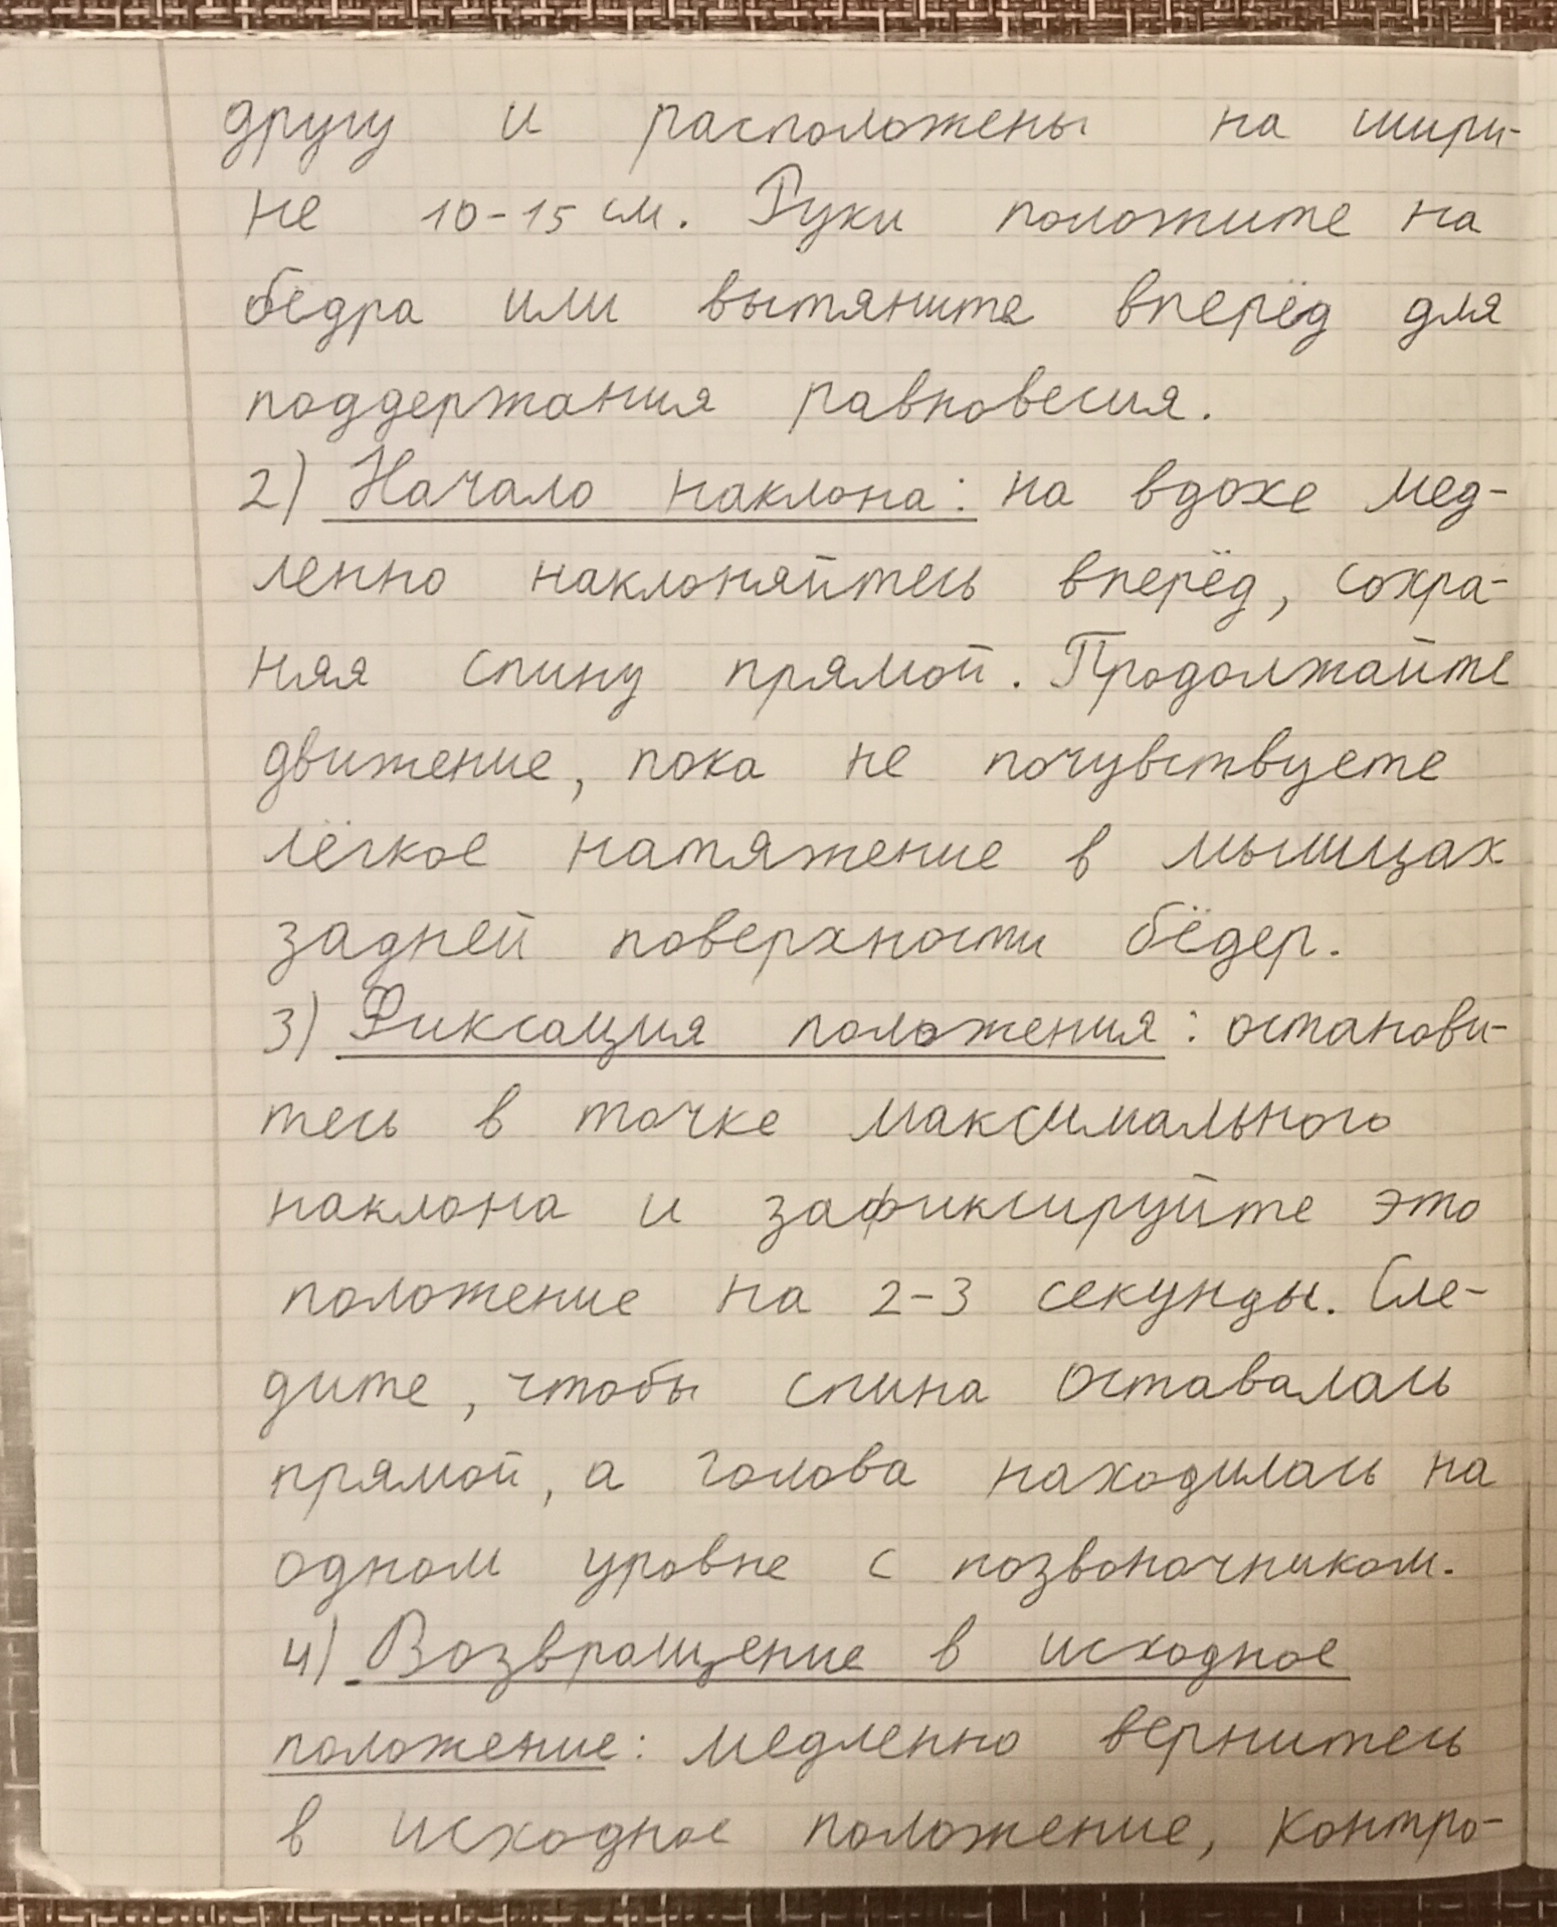 другу и расположены на шири-
не 10-15 см. Руки положите на
бёдра или вытяните вперёд для
поддержания равновесия.
2) Начало наклона: на вдохе мед-
ленно наклоняйтесь вперёд, сохра-
няя спину прямой. Продолжайте
движение, пока не почувствуете
лёгкое натяжение в мышцах
задней поверхности бёдер.
3) Фиксация положения: останови-
тесь в точке максимального
наклона и зафиксируйте это
положение на 2-3 секунды. Сле-
дите, чтобы спина оставалась
прямой, а голова находилась на
одном уровне с позвоночником.
4) Возвращение в исходное
положение: медленно вернитесь
в исходное положение, контро-